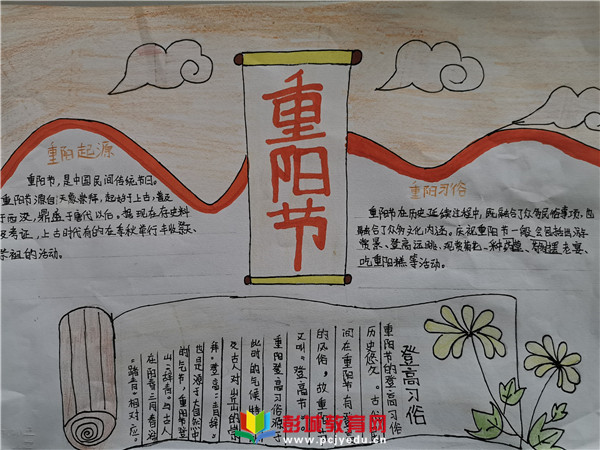 重阳节
重阳起源
重阳节,是中国民间传统节日。
重阳节源自天象崇拜,起始于上古,普及
于西汉,鼎盛于唐代以后。据现存史料
及考证,上古时代有的在季秋举行丰收祭
祭祖的活动。
重阳习俗
重阳节在历史延续过程中,既融合了众多民俗事项,也
融合了众多文化内涵。庆祝重阳节一般会包括出游
赏景、登高远眺、观赏菊花
吃重阳糕等活动。
登高习俗
重阳节的登高习俗
历史悠久。古
间在重阳节有登
的风俗,故重
又叫"登高节"。
重阳登高习俗源于
此时的气候特
及古人对山岳的崇
拜。登高"辞青"
也是源于大自然中
的气节,重阳节登
山"辞青"与古人
在阳春三月春游
"踏青"相对应。
彭城教育网
www.pcjyedu.cn